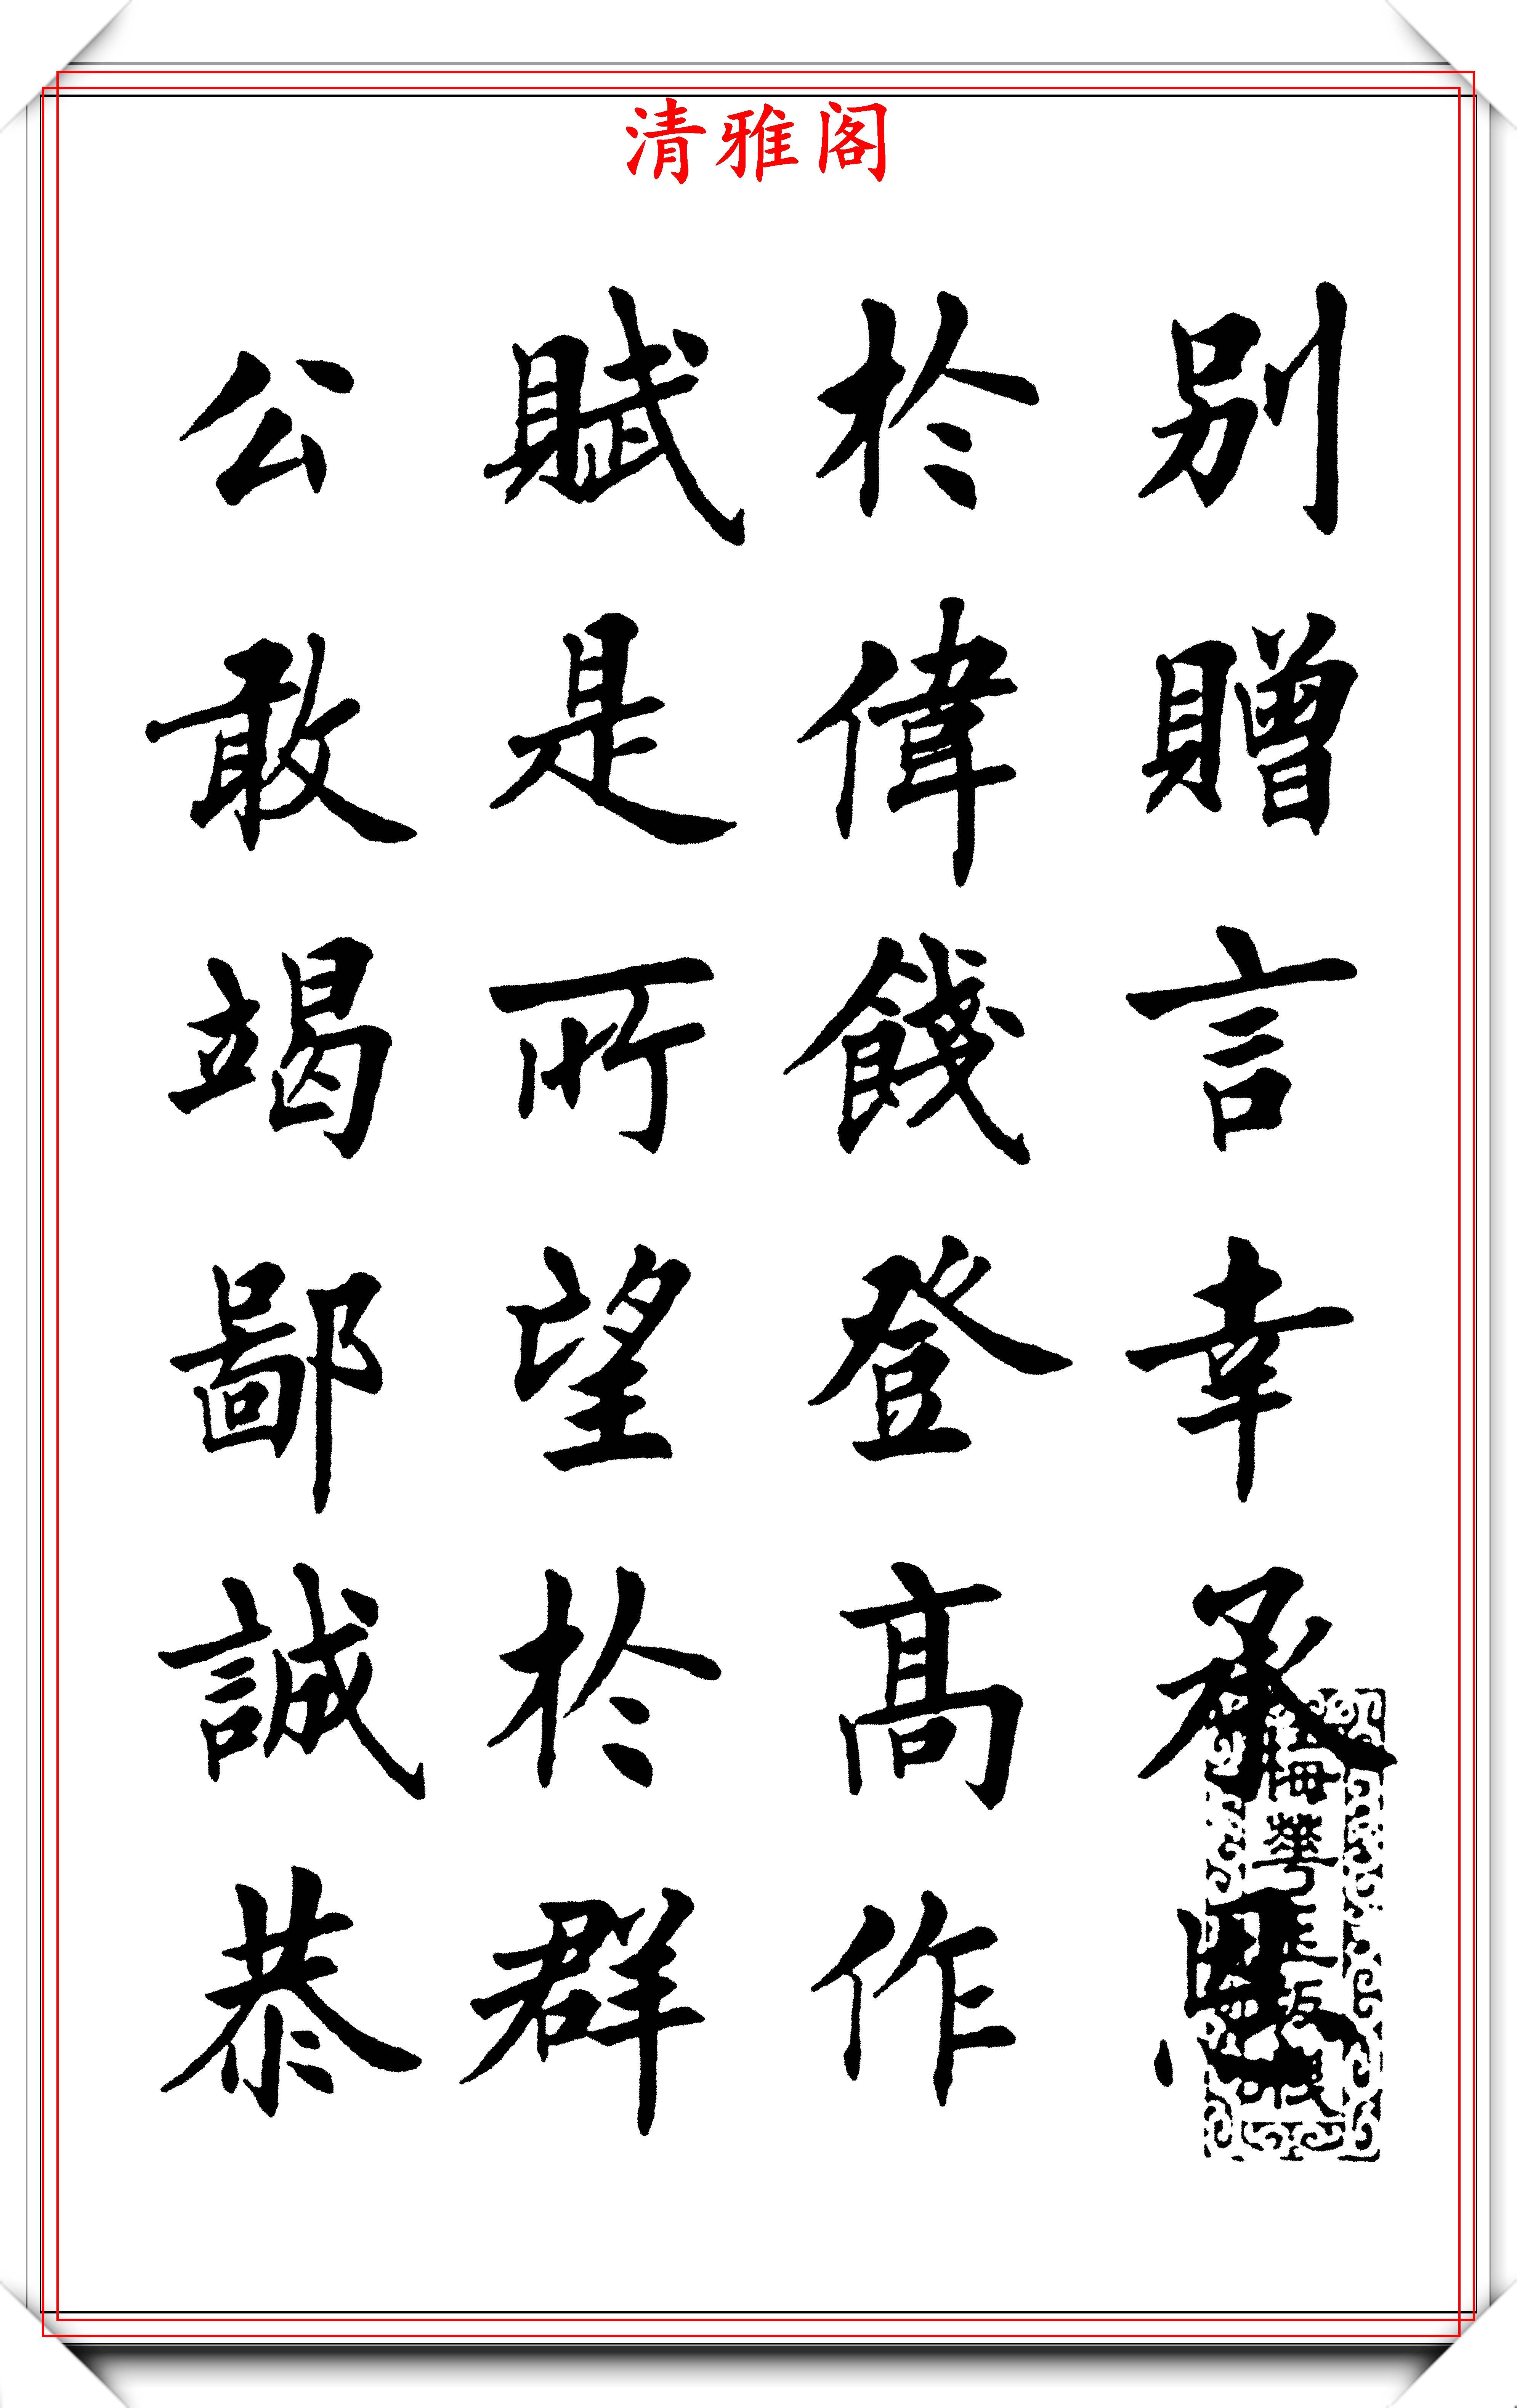 清雅阁
别贈言幸承恩
於偉餞登高作
賦是所望於群
公敢竭鄙誠恭